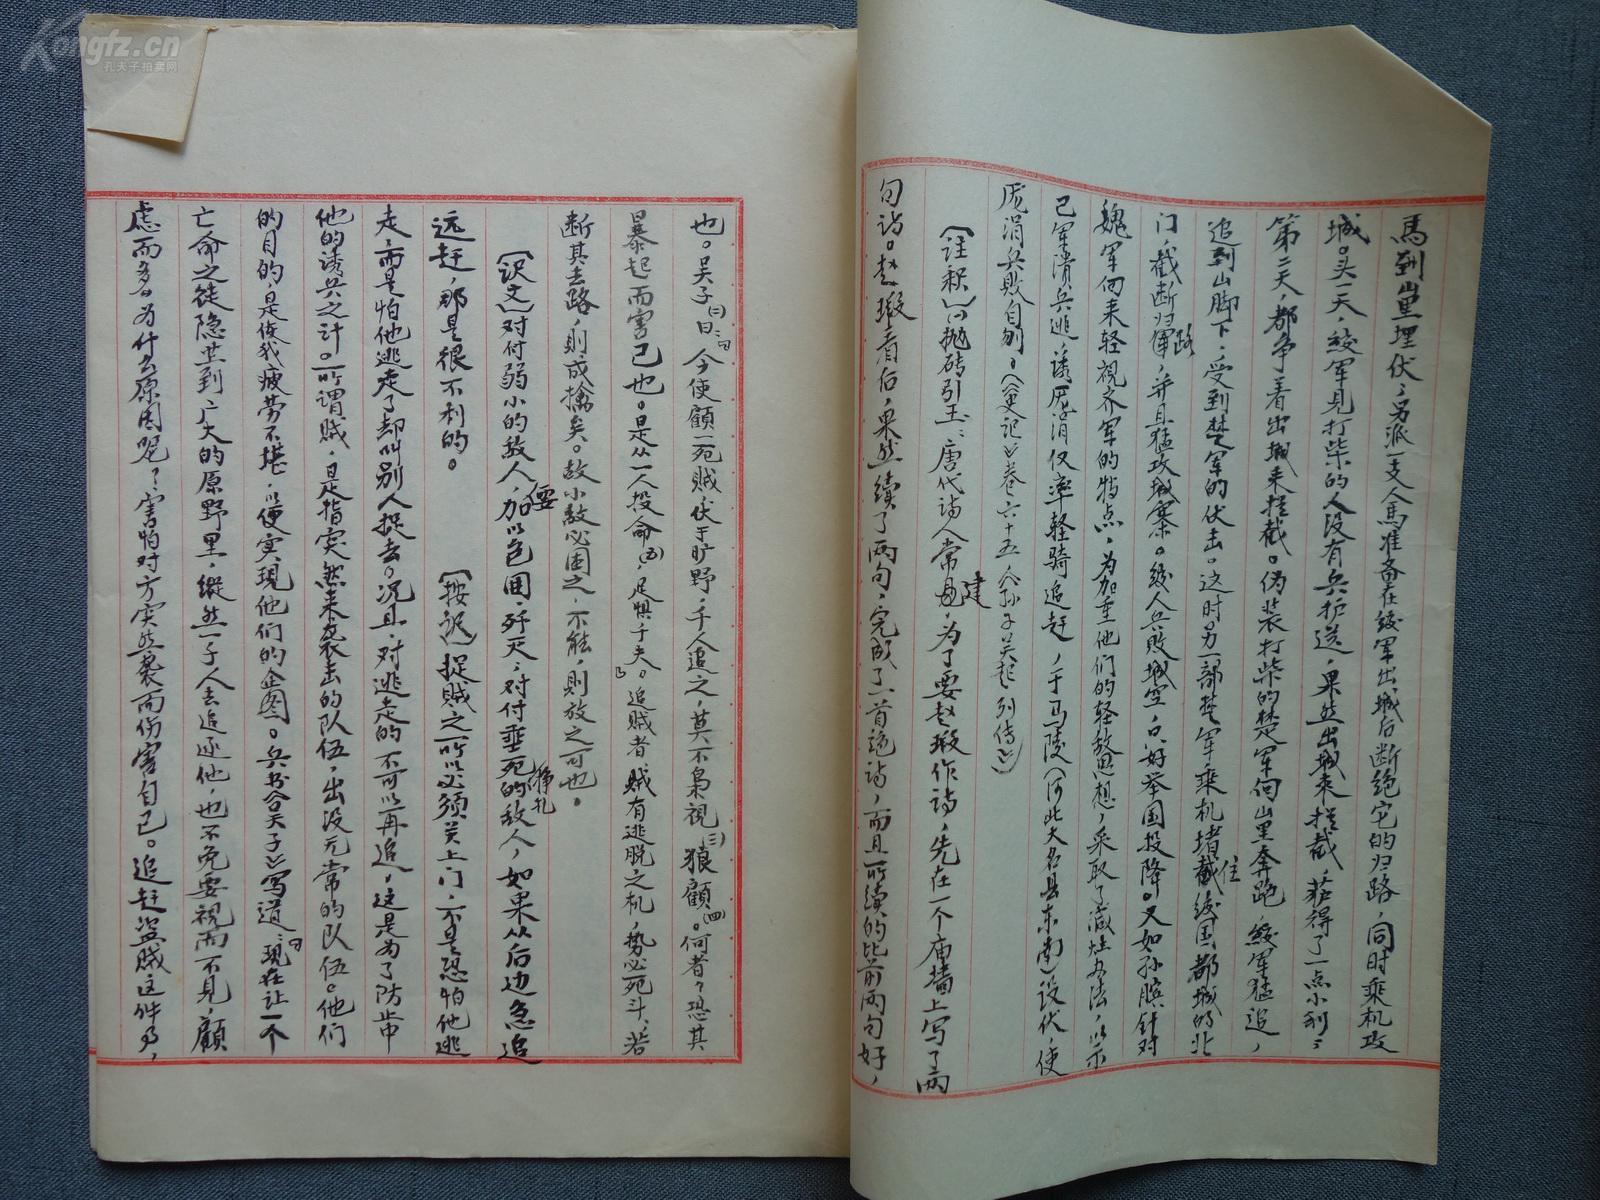 馬到山里埋伏,另派一支人馬准备在绞军出城后断绝它的归路,同时乘机攻
城。头一天,绞军見打柴的人没有兵护送,果然出城来拦截,获得了一点小利;
第二天,都争着出城来拦截。伪装打柴的楚军向山里奔跑,绞军猛追,
追到山脚下,受到楚军的伏击。这时另一部楚军乘机堵截住绞国都城的北
门,截断归路,并且猛攻城寨。绞人兵敗城空,只好举国投降。又如孙膑针对
魏军向来轻視齐军的特点,为加重他们的轻敌思想,采取了减灶办法,以示
己军溃兵逃,诱庞涓仅率轻骑追赶,于马陵(河北大名县东南)设伏,使
庞涓兵敗自刎。(《史记》卷六十五《孙子吴起列传》)
〔注释〕㈠抛砖引玉:唐代诗人常建,为了要赵嘏作诗,先在一个庙墙上写了两
句诗。赵嘏看后,果然续了两句,完成了一首绝诗,而且所续的比前两句好,
也。吴子㈡曰:“今使顧一死贼伏于旷野,千人追之,莫不枭視㈢狼顧㈣。何者?恐其
暴起而害己也。是以一人投命㈤,足惧千夫。”追贼者,贼有逃脱之机,势必死斗,若
断其去路,則成擒矣。故小敌必困之,不能,則放之可也。
〔译文〕对付弱小的敌人,要加以包围,歼灭,对付垂死挣扎的敌人,如果从后边急追
远赶,那是很不利的。
〔按语〕捉贼之所以必须关上门,不是恐怕他逃
走,而是怕他逃走了却叫别人捉去。况且,对逃走的不可以再追,这是为了防中
他的诱兵之计。所谓贼,是指突然来袭击的队伍,出没无常的队伍。他们
的目的,是使我疲劳不堪,以便实現他们的企图。兵书《吴子》写道:“現在让一个
亡命之徒隐蔽到广大的原野里,縱然一千人去追逐他,也不免要視而不見,顧
虑而多。为什么原因呢?害怕对方突然袭而伤害自己。追赶盗贼这件事,
Kongfz.cn
孔夫子拍卖网